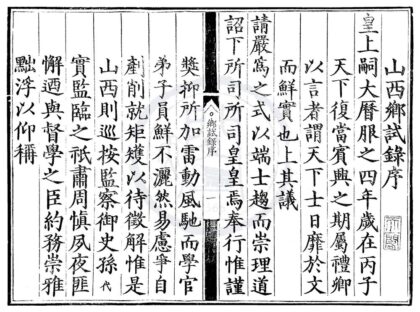 山西鄉試錄序
皇上嗣大曆服之四年歲在丙子
天下復當賓興之期屬禮卿
以言者謂天下士日靡於文
而鮮實也上其議
請嚴爲之式以端士趨而崇理道
詔下所司所司皇皇焉奉行惟謹
鄉試錄序 一
獎抑所加雷動風馳而學官
弟子員鮮不灑然易慮爭自
剷削就矩矱以待徵解惟是
山西則巡按監察御史孫代
實監臨之祇肅周慎夙夜匪
懈迺與督學之臣約務崇雅
黜浮以仰稱